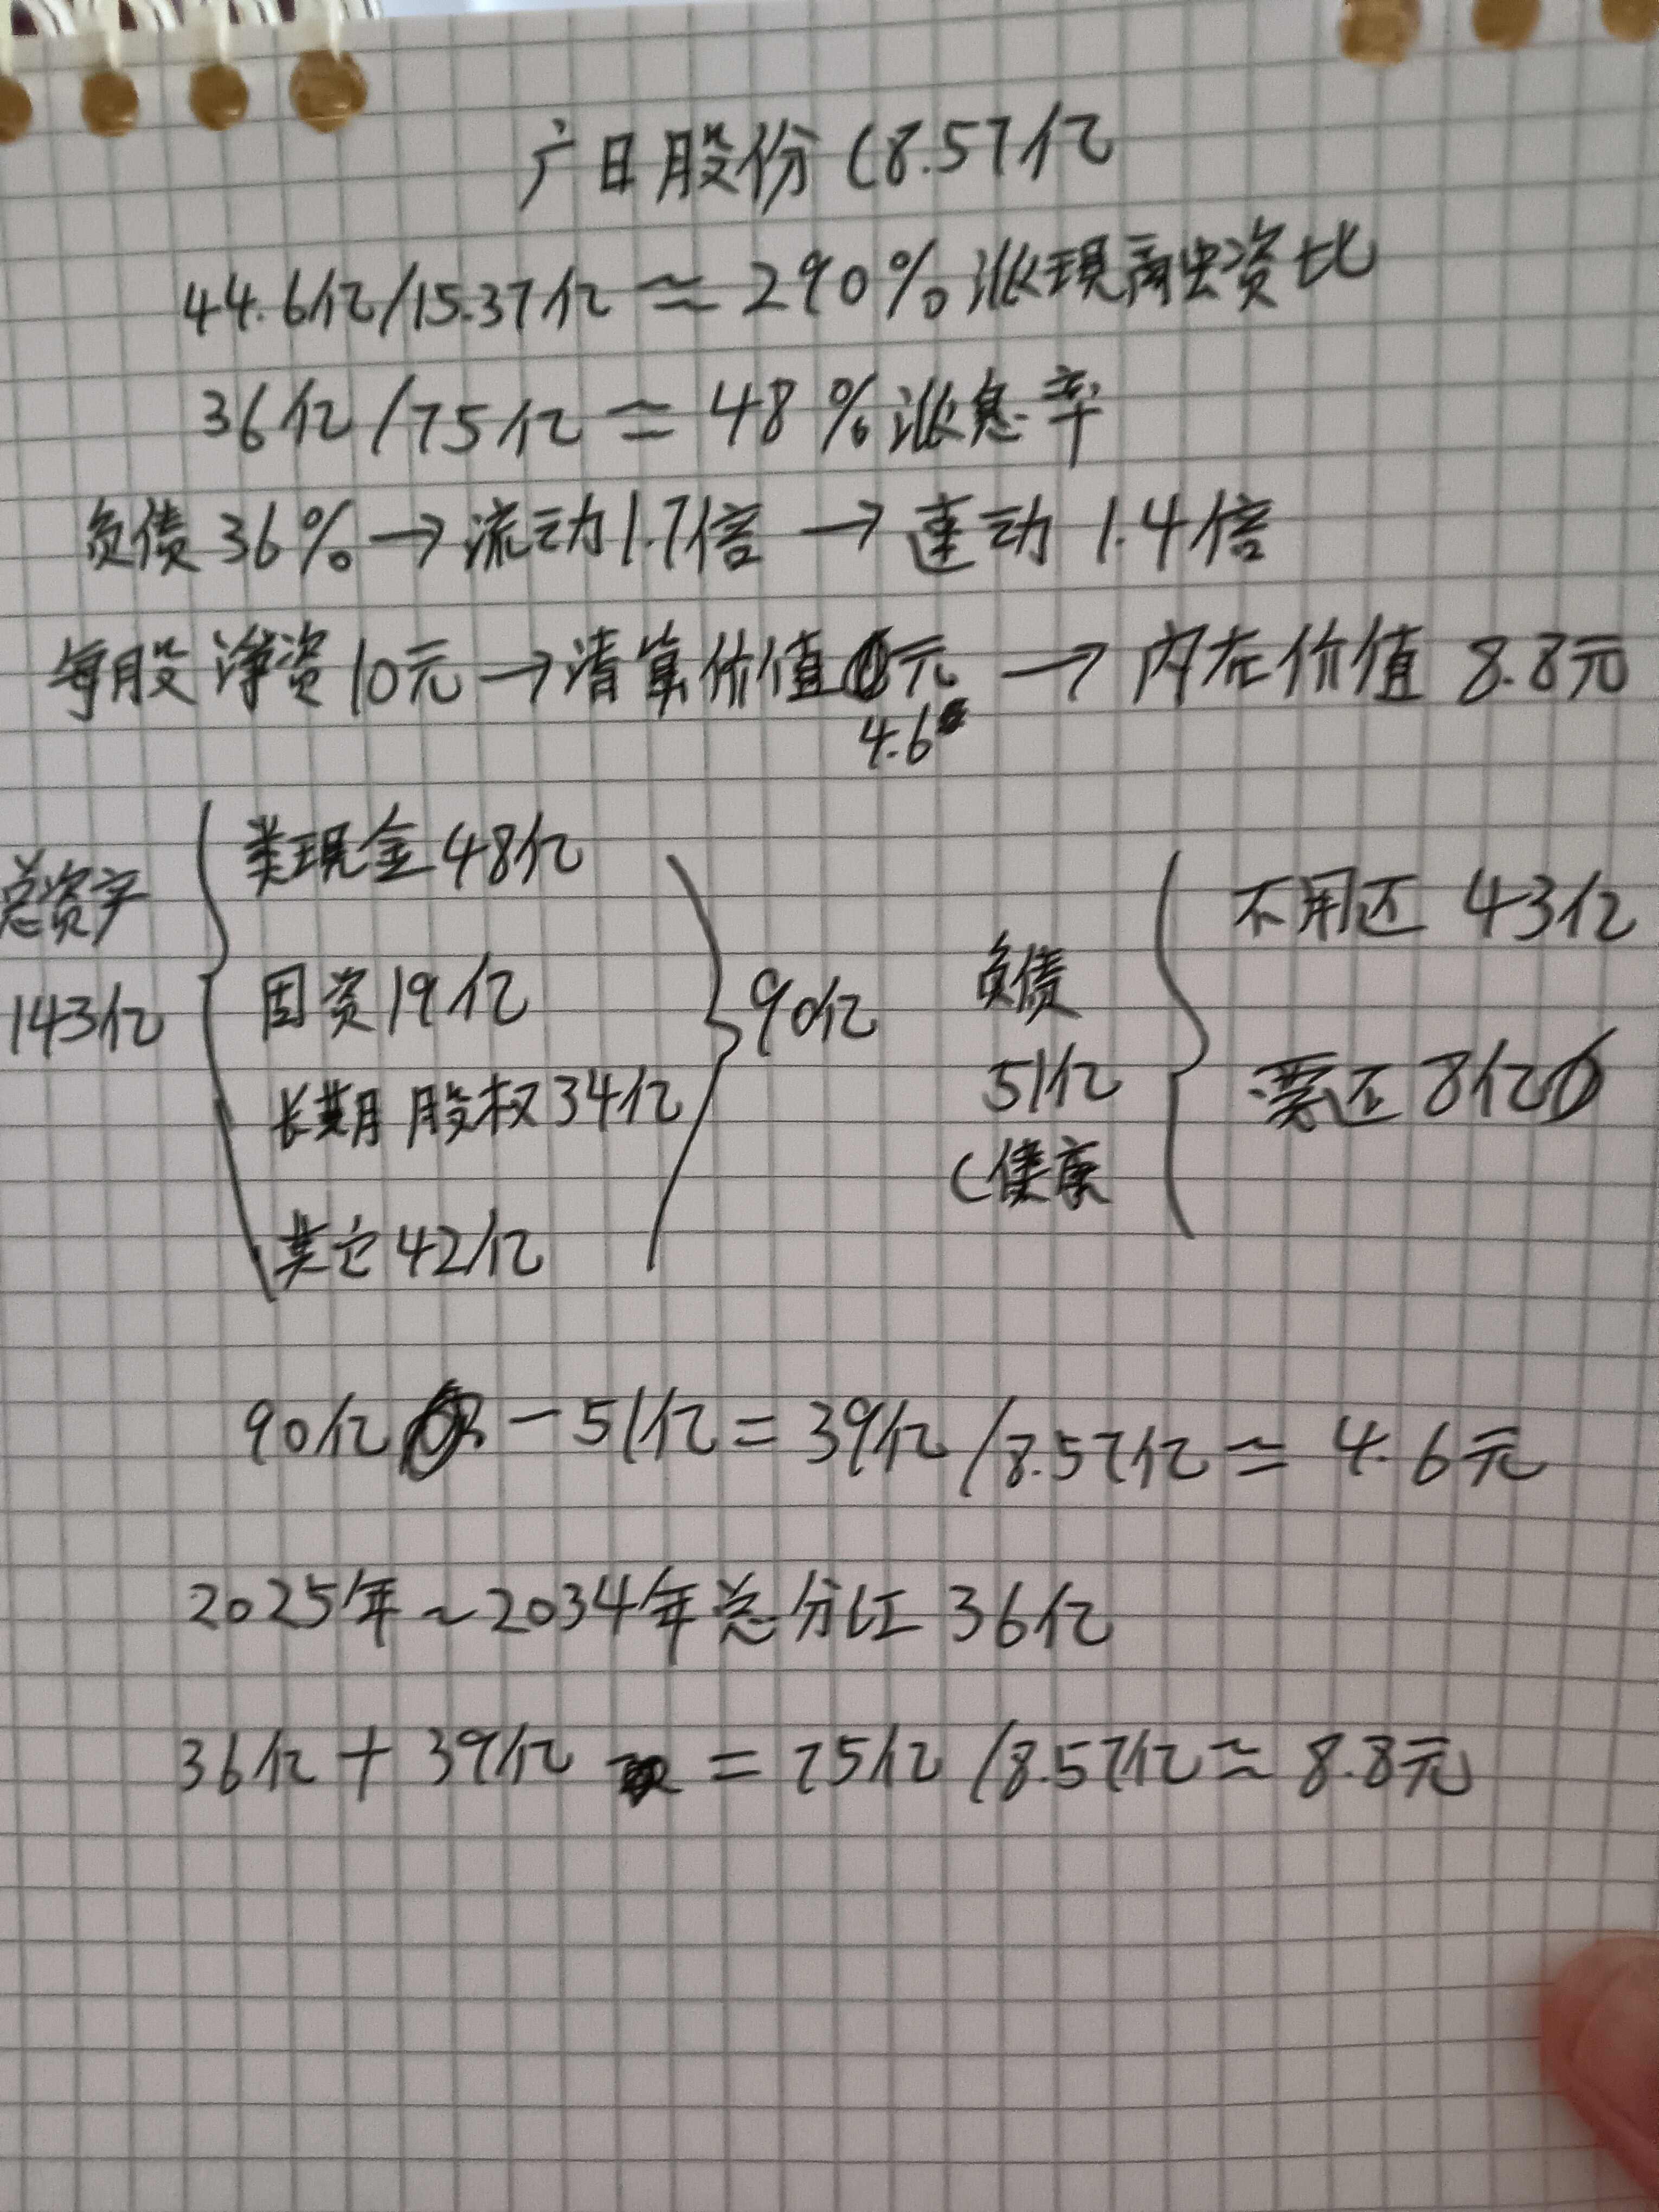 广日股份(8.57亿
44.6亿/15.37亿≈290%派现融出资比
36亿/75亿=48%派息率
负债36%→流动1.7倍→速动1.4倍
每股净资10元→清算价值元→内在价值8.8元
4.6
总资产
143亿
类现金48亿
固资19亿
长期股权34亿
其它42亿
90亿
负债
51亿
(健康
不用还43亿
要还8亿
90亿-51亿=39亿/8.57亿≈4.6元
2025年~2034年总分红36亿
36亿+39亿=75亿/8.57亿≈8.8元